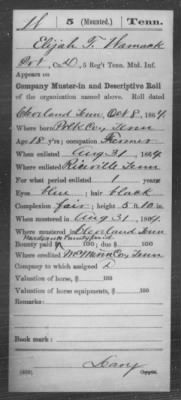 5 (Mounted.) Tenn.
Elijah T. Wamack
Pvt, Co. D, 5 Reg't Tenn. Mtd. Inf.
Appears on
Company Muster-in and Descriptive Roll
of the organization named above. Roll dated
Cleveland Tenn Oct 8, 1864.
Where born Polk Co, Tenn
Age 18 y'rs; occupation Farmer
When enlisted Aug 31, 1864
Where enlisted Riceville Tenn
For what period enlisted 1 years
Eyes blue; hair black
Complexion fair; height 5 ft. 10 in.
When mustered in Aug 31, 1864
Where mustered in Cleveland Tenn
Bounty paid $ 100; due $ 100
Where credited McMinn Co, Tenn
Company to which assigned D
Valuation of horse, $ 100
Valuation of horse equipments, $ 100
Remarks:
Book mark:
Copyist.